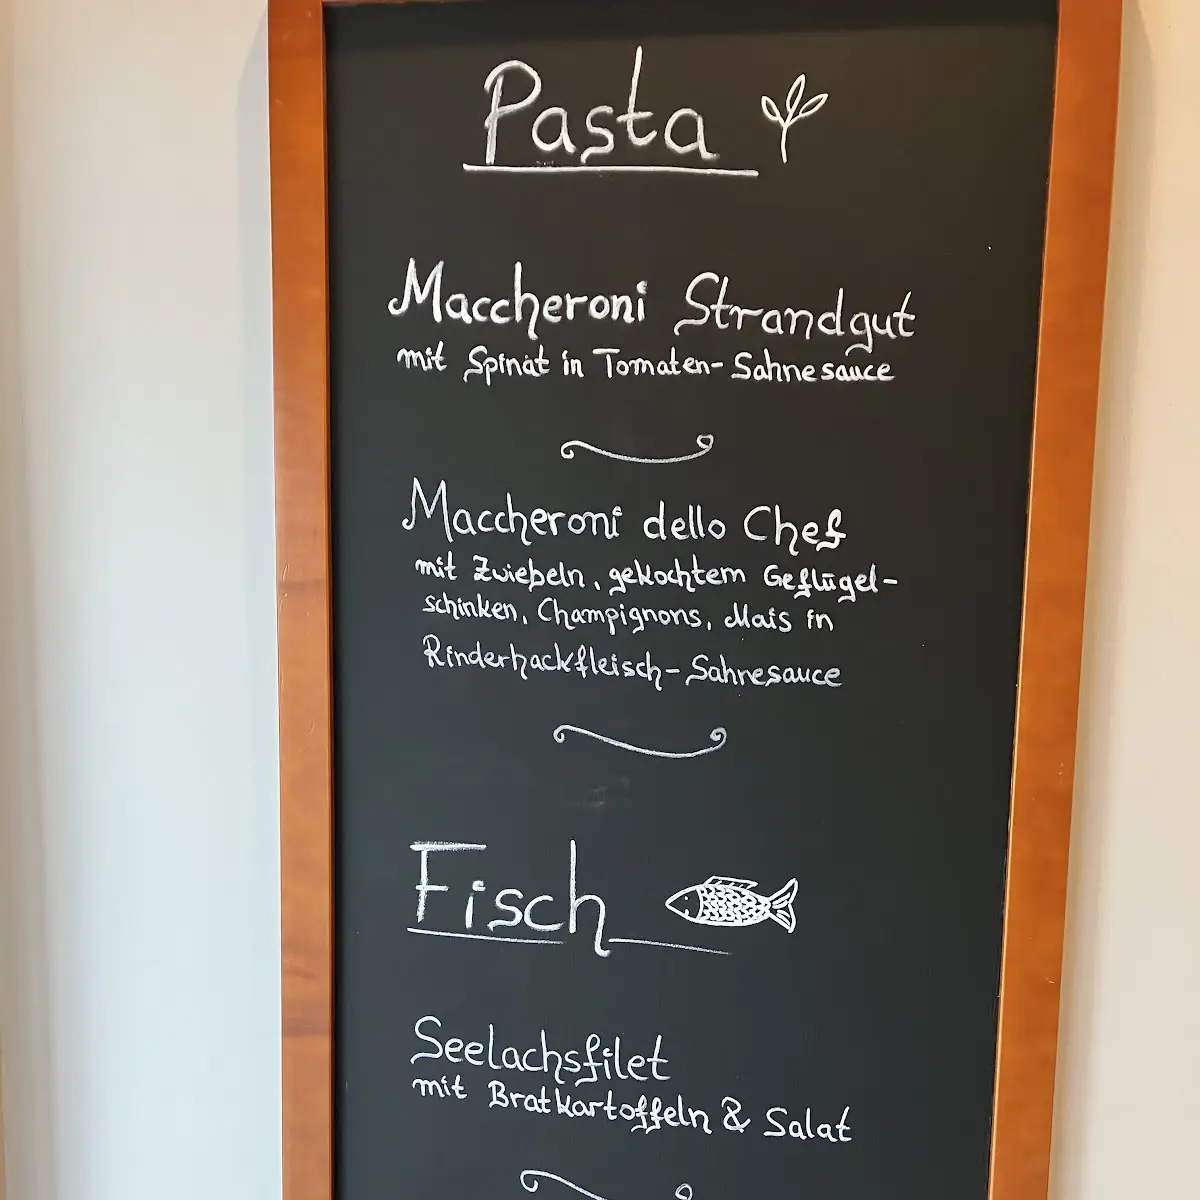 Pasta
Maccheroni Strandgut
mit Spinat in Tomaten-Sahnesauce
Maccheroni dello Chef
mit Zwiebeln, gekochtem Geflügel-
schinken, Champignons, Mais in
Rinderhackfleisch-Sahnesauce
Fisch
Seelachsfilet
mit Bratkartoffeln & Salat